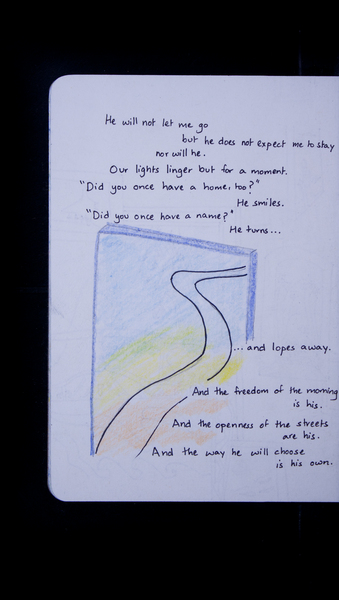 He will not let me go
but he does not expect me to stay
nor will he.
Our lights linger but for a moment.
"Did you once have a home, too?"
He smiles.
"Did you once have a name?"
He turns...
...and lopes away.
And the freedom of the morning
is his.
And the openness of the streets
are his.
And the way he will choose
is his own.